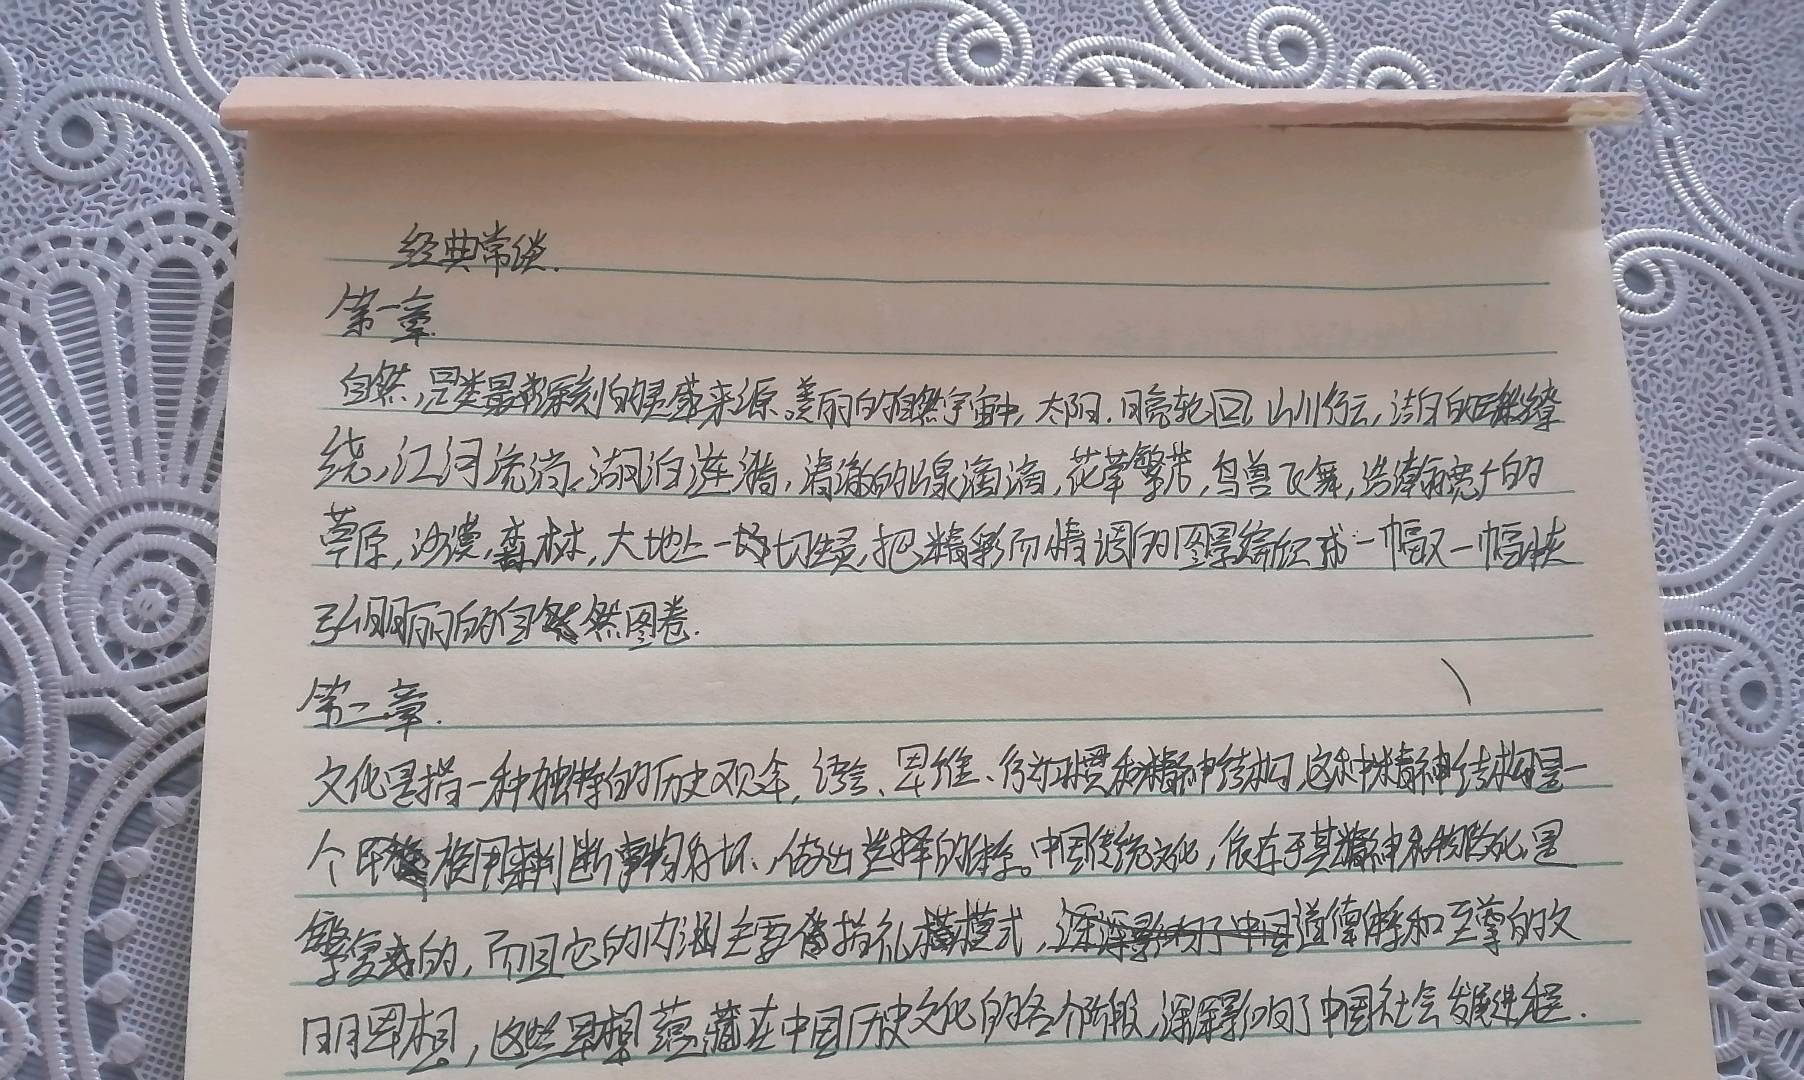 经典常谈.
第一章.
自然,是类最深刻的灵感来源.美丽的自然宇宙中,太阳.月亮轮回,山川行云,洁白的云缭
绕,江河流淌,湖泊涟漪,清澈的泉滴滴,花草繁茂,鸟兽飞舞,浩瀚宽广的
草原,沙漠,森林,大地上一切生灵,把精彩而情调的图景编织成一幅又一幅
弘明丽的自然图卷.
第二章.
文化是指一种独特的历史观念,语言、思维、行为习惯和精神结构,这种精神结构是一
个用来判断事物好坏、做出选择的体系。中国传统文化,依存于其精神和物质文化,是
繁复的,而且它的内涵主要指礼模式,道德体系和至尊的文
明思想,这些思想蕴藏在中国历史文化的各个阶段,深深影响了中国社会发展进程.